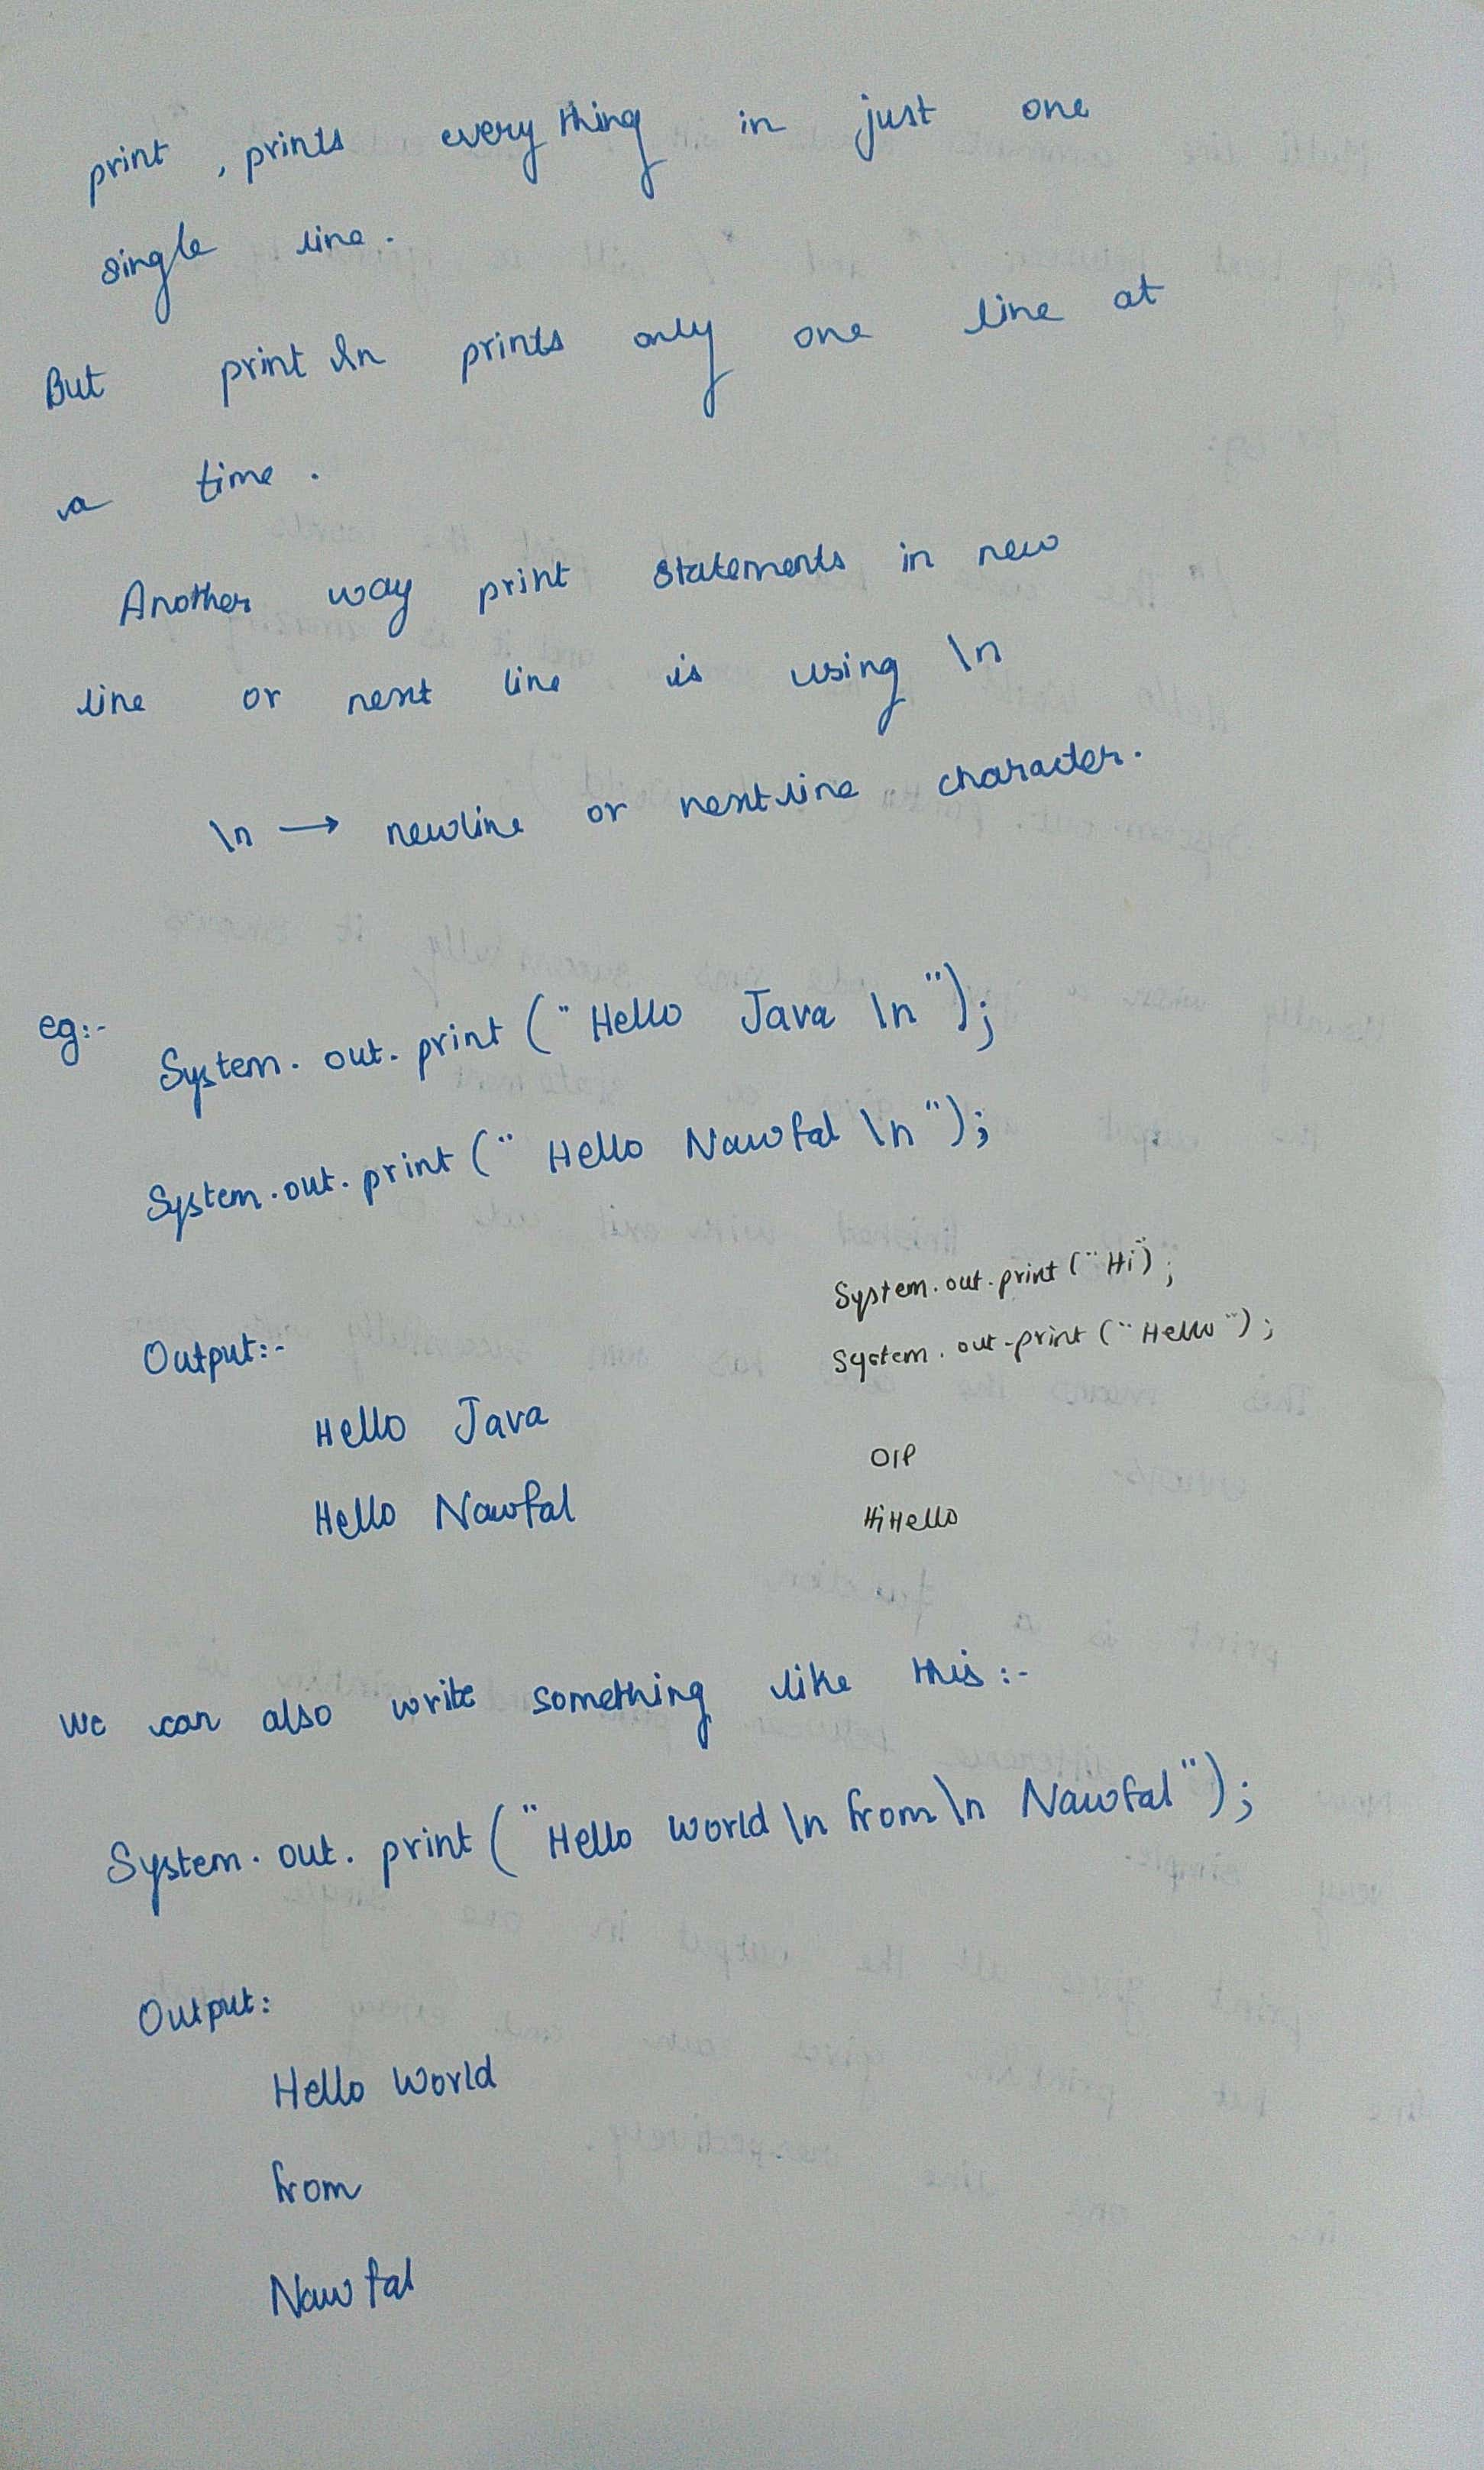 print , prints everything in just one
single line.
But println prints only one line at
a time .
Another way print statements in new
line or next line is using \n
\n → newline or nextline character.
eg:- System. out. print (" Hello Java \n ");
System.out. print (" Hello Nawfal \n ");
Output:-
Hello Java
Hello Nawfal
System.out.print ("Hi");
System. out.print ("Hello");
O/P
HiHello
We can also write something like this :-
System. out. print ("Hello World \n from \n Nawfal");
Output:
Hello World
from
Nawfal